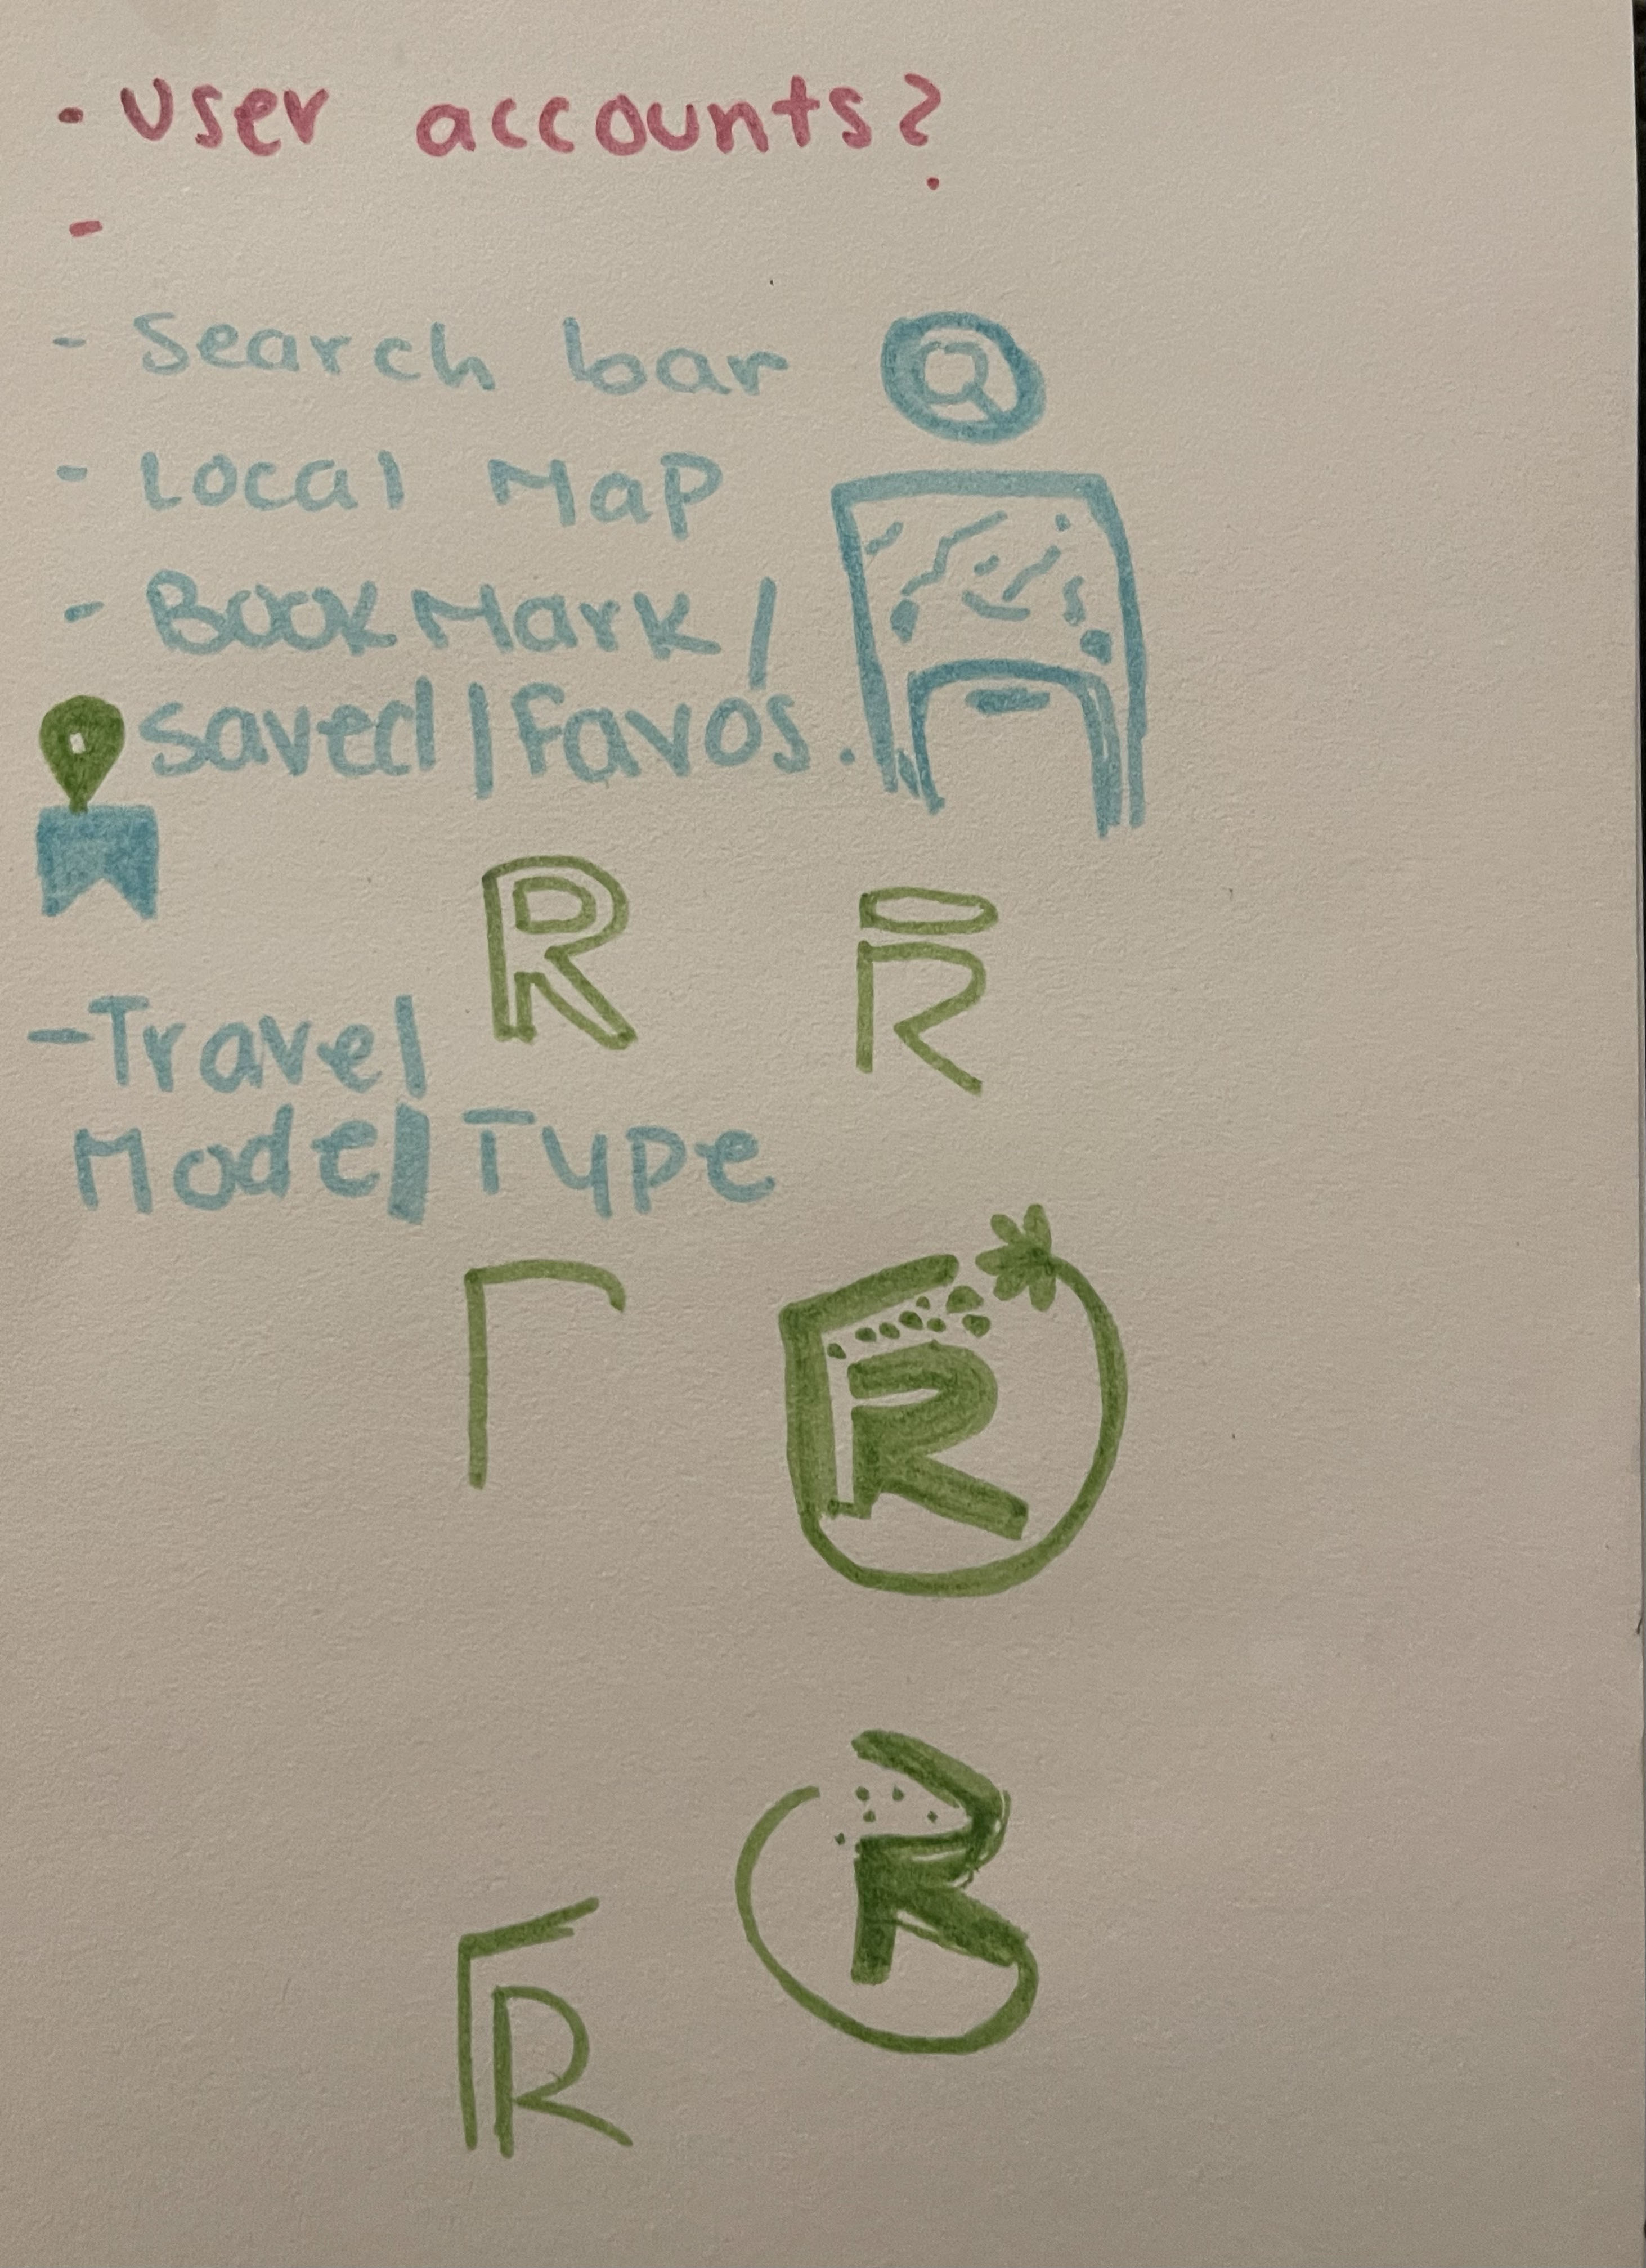 - User accounts?
-
- Search bar
- Local Map
- BookMark /
saved / Favos.
R R
- Travel
Mode / Type
R
R
R